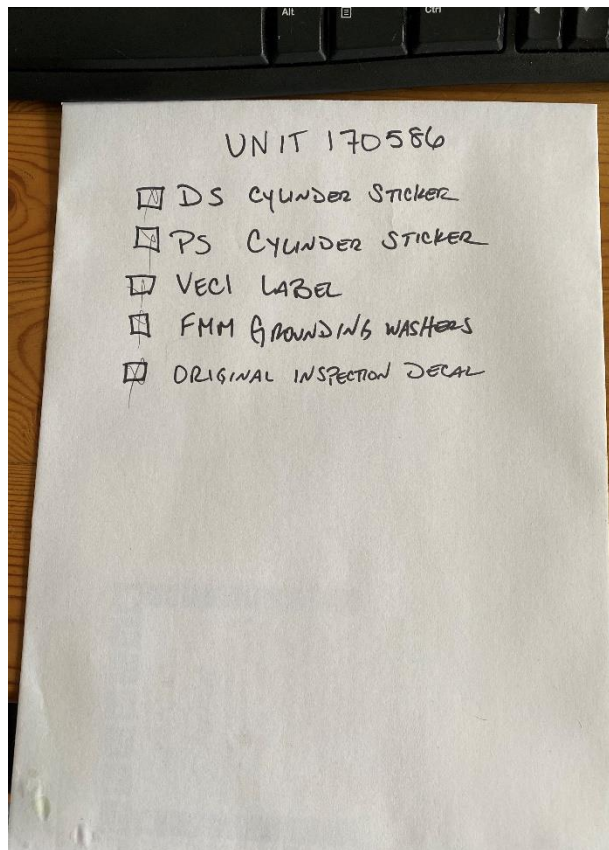 Alt
Ctrl
UNIT 170586
DS CYLINDER STICKER
PS CYLINDER STICKER
VECI LABEL
FMM GROUNDING WASHERS
ORIGINAL INSPECTION DECAL